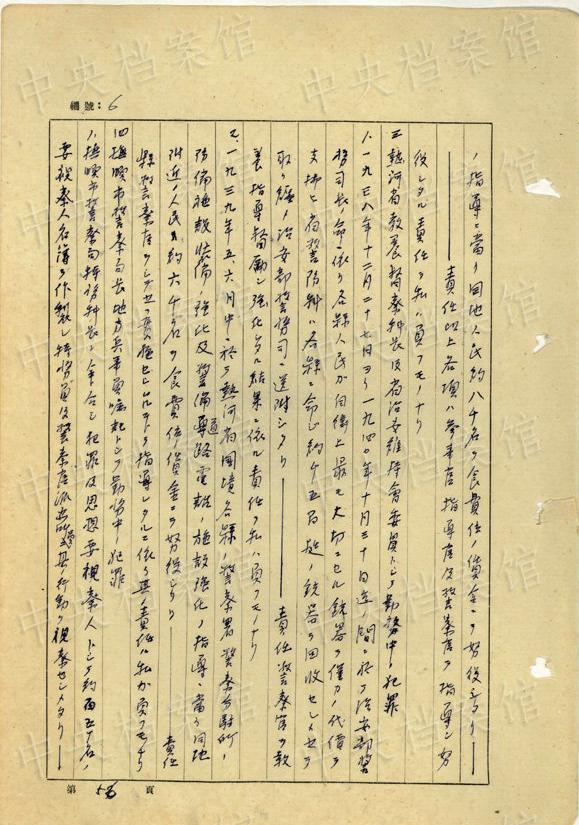 中央档案馆
編號：6
ノ指導ニ當リ同地人民約八千名ヲ食費位ノ賃金ニテ努役シタリ――
――責任以上各項ハ參事官指導官及警察官ヲ指導シ努
役シタル責任ヲ私ハ負フモノナリ
三、熱河省教養督察科長及省治安維持會委員トシテ勤務中ノ犯罪
1、一九三八年十二月二十七日ヨリ一九四〇年十月三十日迄ノ間ニ於テ治安部警
務司長ノ命ニ依リ各縣人民カ自衛上最モ大切ニセル銃器ヲ僅カノ代價ヲ
支拂ヒ省警防科ハ各縣ニ命シ約千五百挺ノ銃器ヲ回收セシメ
取リ纏メ治安部警務司ニ送附シタリ――責任警察官ヲ教
養指導督勵シ強化シタル結果ニ依ル責任ヲ私ハ負フモノナリ
2、一九三九年五、六月中ニ於テ熱河省國境各縣ノ警察署警察分駐所ノ
防備施設裝備ノ強化及警備道路電話ノ施設強化ノ指導ニ當リ同地
附近ノ人民約六千名ヲ食費位ノ賃金ニテ努役シタリ――責任
縣警察官ヲシテ實施セシムルコトヲ指導シタルニ依ル其ノ責任ハ私カ負フモノナリ
四、撫順市警察局長地方兵事員トシテ勤務中ノ犯罪
1、撫順市警察局特務科長ニ命令シ犯罪及思想要視察人トシテ約百五十名ノ
要視察人名簿ヲ作製シ特務員及警察官派出所員其ノ行動ヲ視察セシメタリ――
第 56 頁